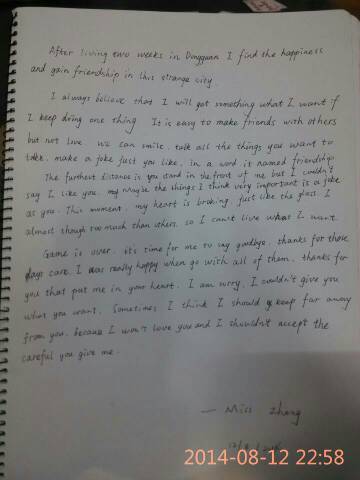 After living two weeks in Dongguan I find the happiness
and gain friendship in this strange city.
I always believe that I will got something what I want if
I keep doing one thing. It is easy to make friends with others
but not love. we can smile. talk all the things you want to
take. make a joke just you like. in a word it named friendship
The furthest distance is you stand in the front of me but I couldn't
say I like you. my maybe the things I think very important is a joke
as you. This moment, my heart is broking, just like the glass I
almost though too much than others. so I can't live what I want.
Game is over. it's time for me to say goodbye. thanks for those
days care. I was really happy when go with all of them. thanks for
you that put me in your heart. I am sorry. I couldn't give you
what you want. Sometimes I think I should keep far away
from you. because I won't love you and I shouldn't accept the
careful you give me.
— Miss Zhang
2014-08-12 22:58